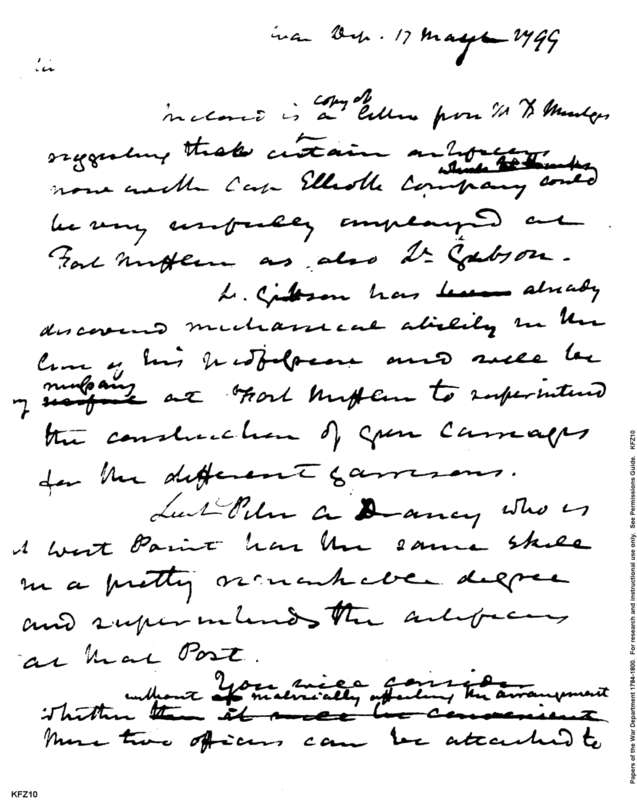 War Dep. 17 May 1799
Sir
Inclosed is a copy of letter from
suggesting that certain artificers
now with Cap Elliotts Company could
be very usefully employed at
Fort Mifflin as also Lt. Gibson.
Lt. Gibson has been already
discovered mechanical ability in the
line of his and will be
of necessary at Fort Mifflin to superintend
the construction of gun carriages
for the different garrisons.
Lieut Peter A Dransy who is
at West Point has the same skill
in a pretty remarkable degree
and superintends the artificers
at that Post.
You will consider
without materially affecting the arrangement
whether it will be convenient
these two officers can be attached to
KFZ10
Papers of the War Department 1784-1800. For research and instructional use only. See Permissions Guide. KFZ10